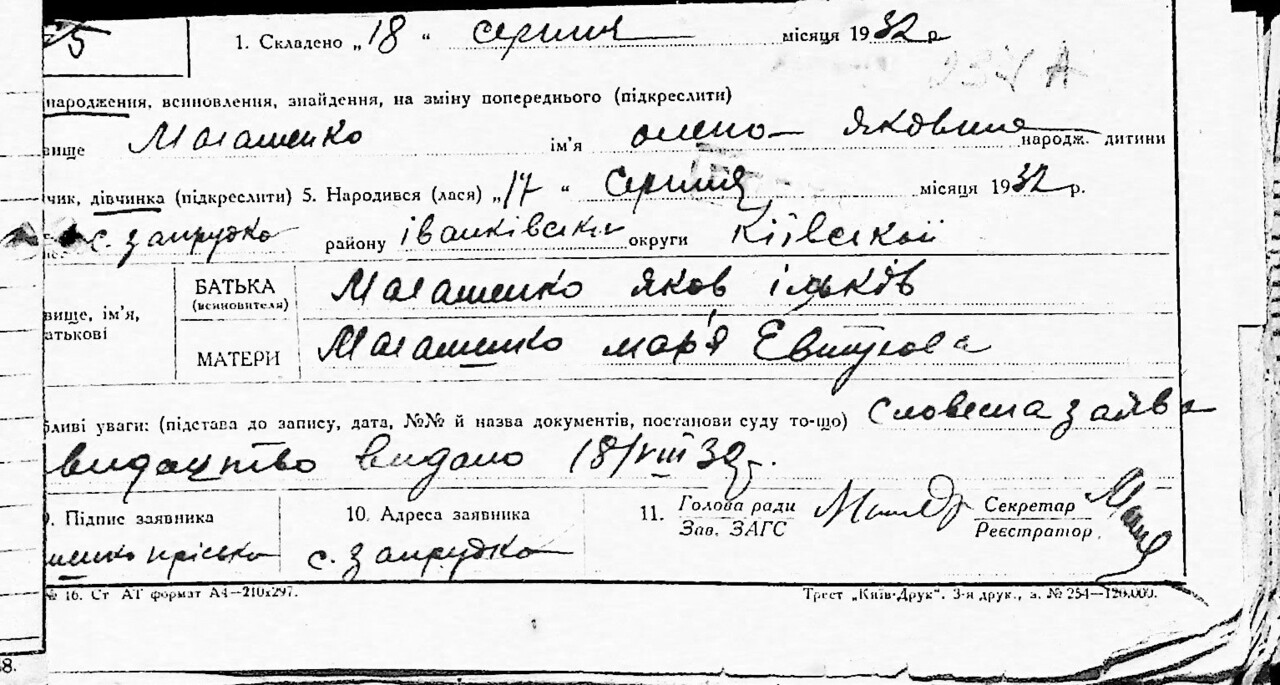 5
1. Складено „18 “ серпня місяця 1932 р
234 А
народження, всиновлення, знайдення, на зміну попереднього (підкреслити)
вище Малашенко ім'я олено Яковина народж. дитини
чик, дівчинка (підкреслити) 5. Народився (лася) „17 “ Серпня місяця 1932 р.
с. запрудко району іванківськи округи Київськой
БАТЬКА
(всиновителя)
Малашенко яков ільків
вище, ім'я,
атькові
МАТЕРИ Малашенко мар'я Евтухова
бливі уваги: (підстава до запису, дата, №№ й назва документів, постанови суду то-що) Словесна заява
видацтво видано 18/VIII 32р.
9. Підпис заявника 10. Адреса заявника 11. Голова ради Секретар
Зав. ЗАГС Реєстратор
шенко пріська с. запрудко
№ 16. Ст АТ формат А4—210х297. Трест „Київ-Друк“. 3-я друк., з. № 254—120.000.
38.